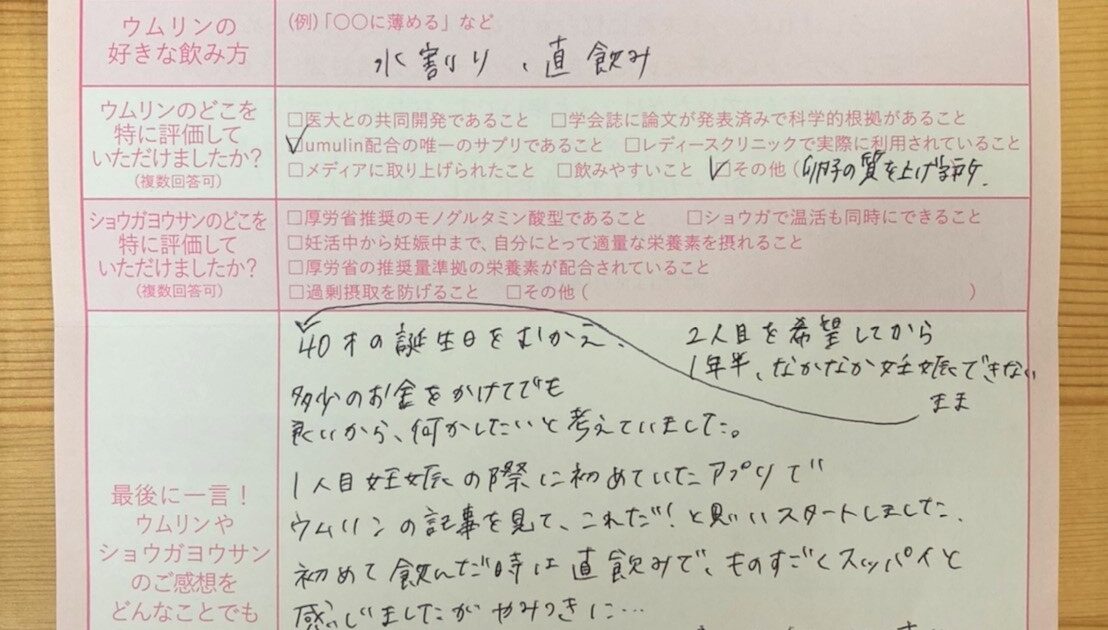 ウムリンの
好きな飲み方
(例)「〇〇に薄める」など
水割り、直飲み
ウムリンのどこを
特に評価して
いただけましたか?
(複数回答可)
□医大との共同開発であること □学会誌に論文が発表済みで科学的根拠があること
☑umulin配合の唯一のサプリであること □レディースクリニックで実際に利用されていること
□メディアに取り上げられたこと □飲みやすいこと ☑その他(卵子の質を上げ
ショウガヨウサンのどこを
特に評価して
いただけましたか?
(複数回答可)
□厚労省推奨のモノグルタミン酸型であること □ショウガで温活も同時にできること
□妊活中から妊娠中まで、自分にとって適量な栄養素を摂れること
□厚労省の推奨量準拠の栄養素が配合されていること
□過剰摂取を防げること □その他( )
最後に一言!
ウムリンや
ショウガヨウサン
のご感想を
どんなことでも
2人目を希望してから
1年半、なかなか妊娠できない
まま
40才の誕生日をむかえ、
多少のお金をかけてでも
良いから、何かしたいと考えていました。
1人目妊娠の際に初めていたアプリで
ウムリンの記事を見て、これだ!と思いスタートしました。
初めて飲んだ時は直飲みで、ものすごくスッパイと
感じましたがやみつきに…